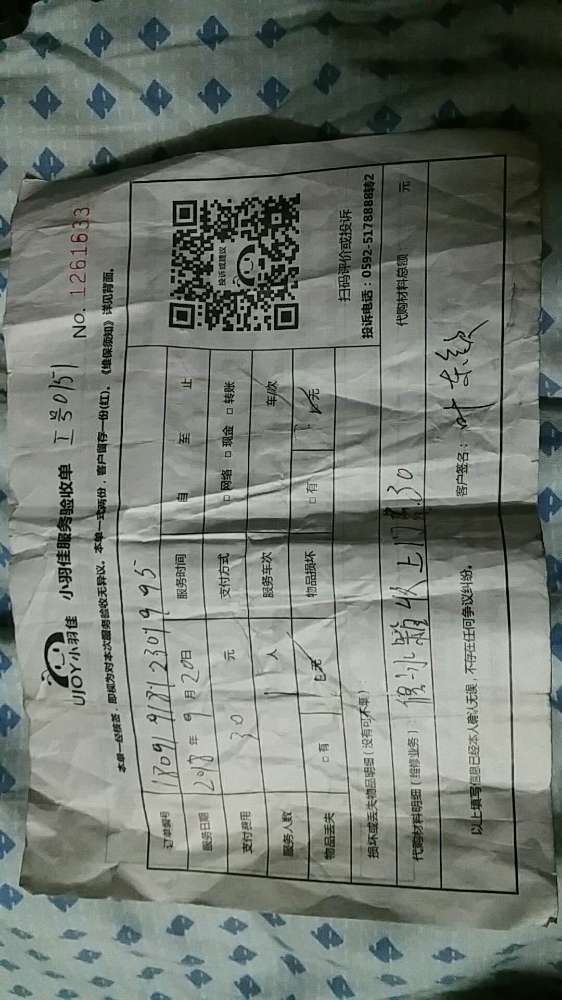 UJOY小羽佳 小羽佳服务验收单 工号0151 NO. 1261633
本单一经核签，即视为对本次服务验收无异议。本单一式两份，客户留存一份(红)。《维保须知》详见背面。
订单编号
服务日期 2018 年 9 月 20 日 服务时间 自 至 止
支付费用 30 元 支付方式 □ 网络 □ 现金 □ 转账
服务人数 1 人 服务车次 车/次
物品丢失 □ 有 无 物品损坏 □ 有 无
投诉或建议
扫码评价或投诉
投诉电话：0592-5178888转2
损坏或丢失物品明细（没有可不填）
代购材料明细（维修业务） 收上门 30 代购材料总额： 元
以上填写信息已经本人确认无误，不存在任何争议纠纷。 客户签名：叶